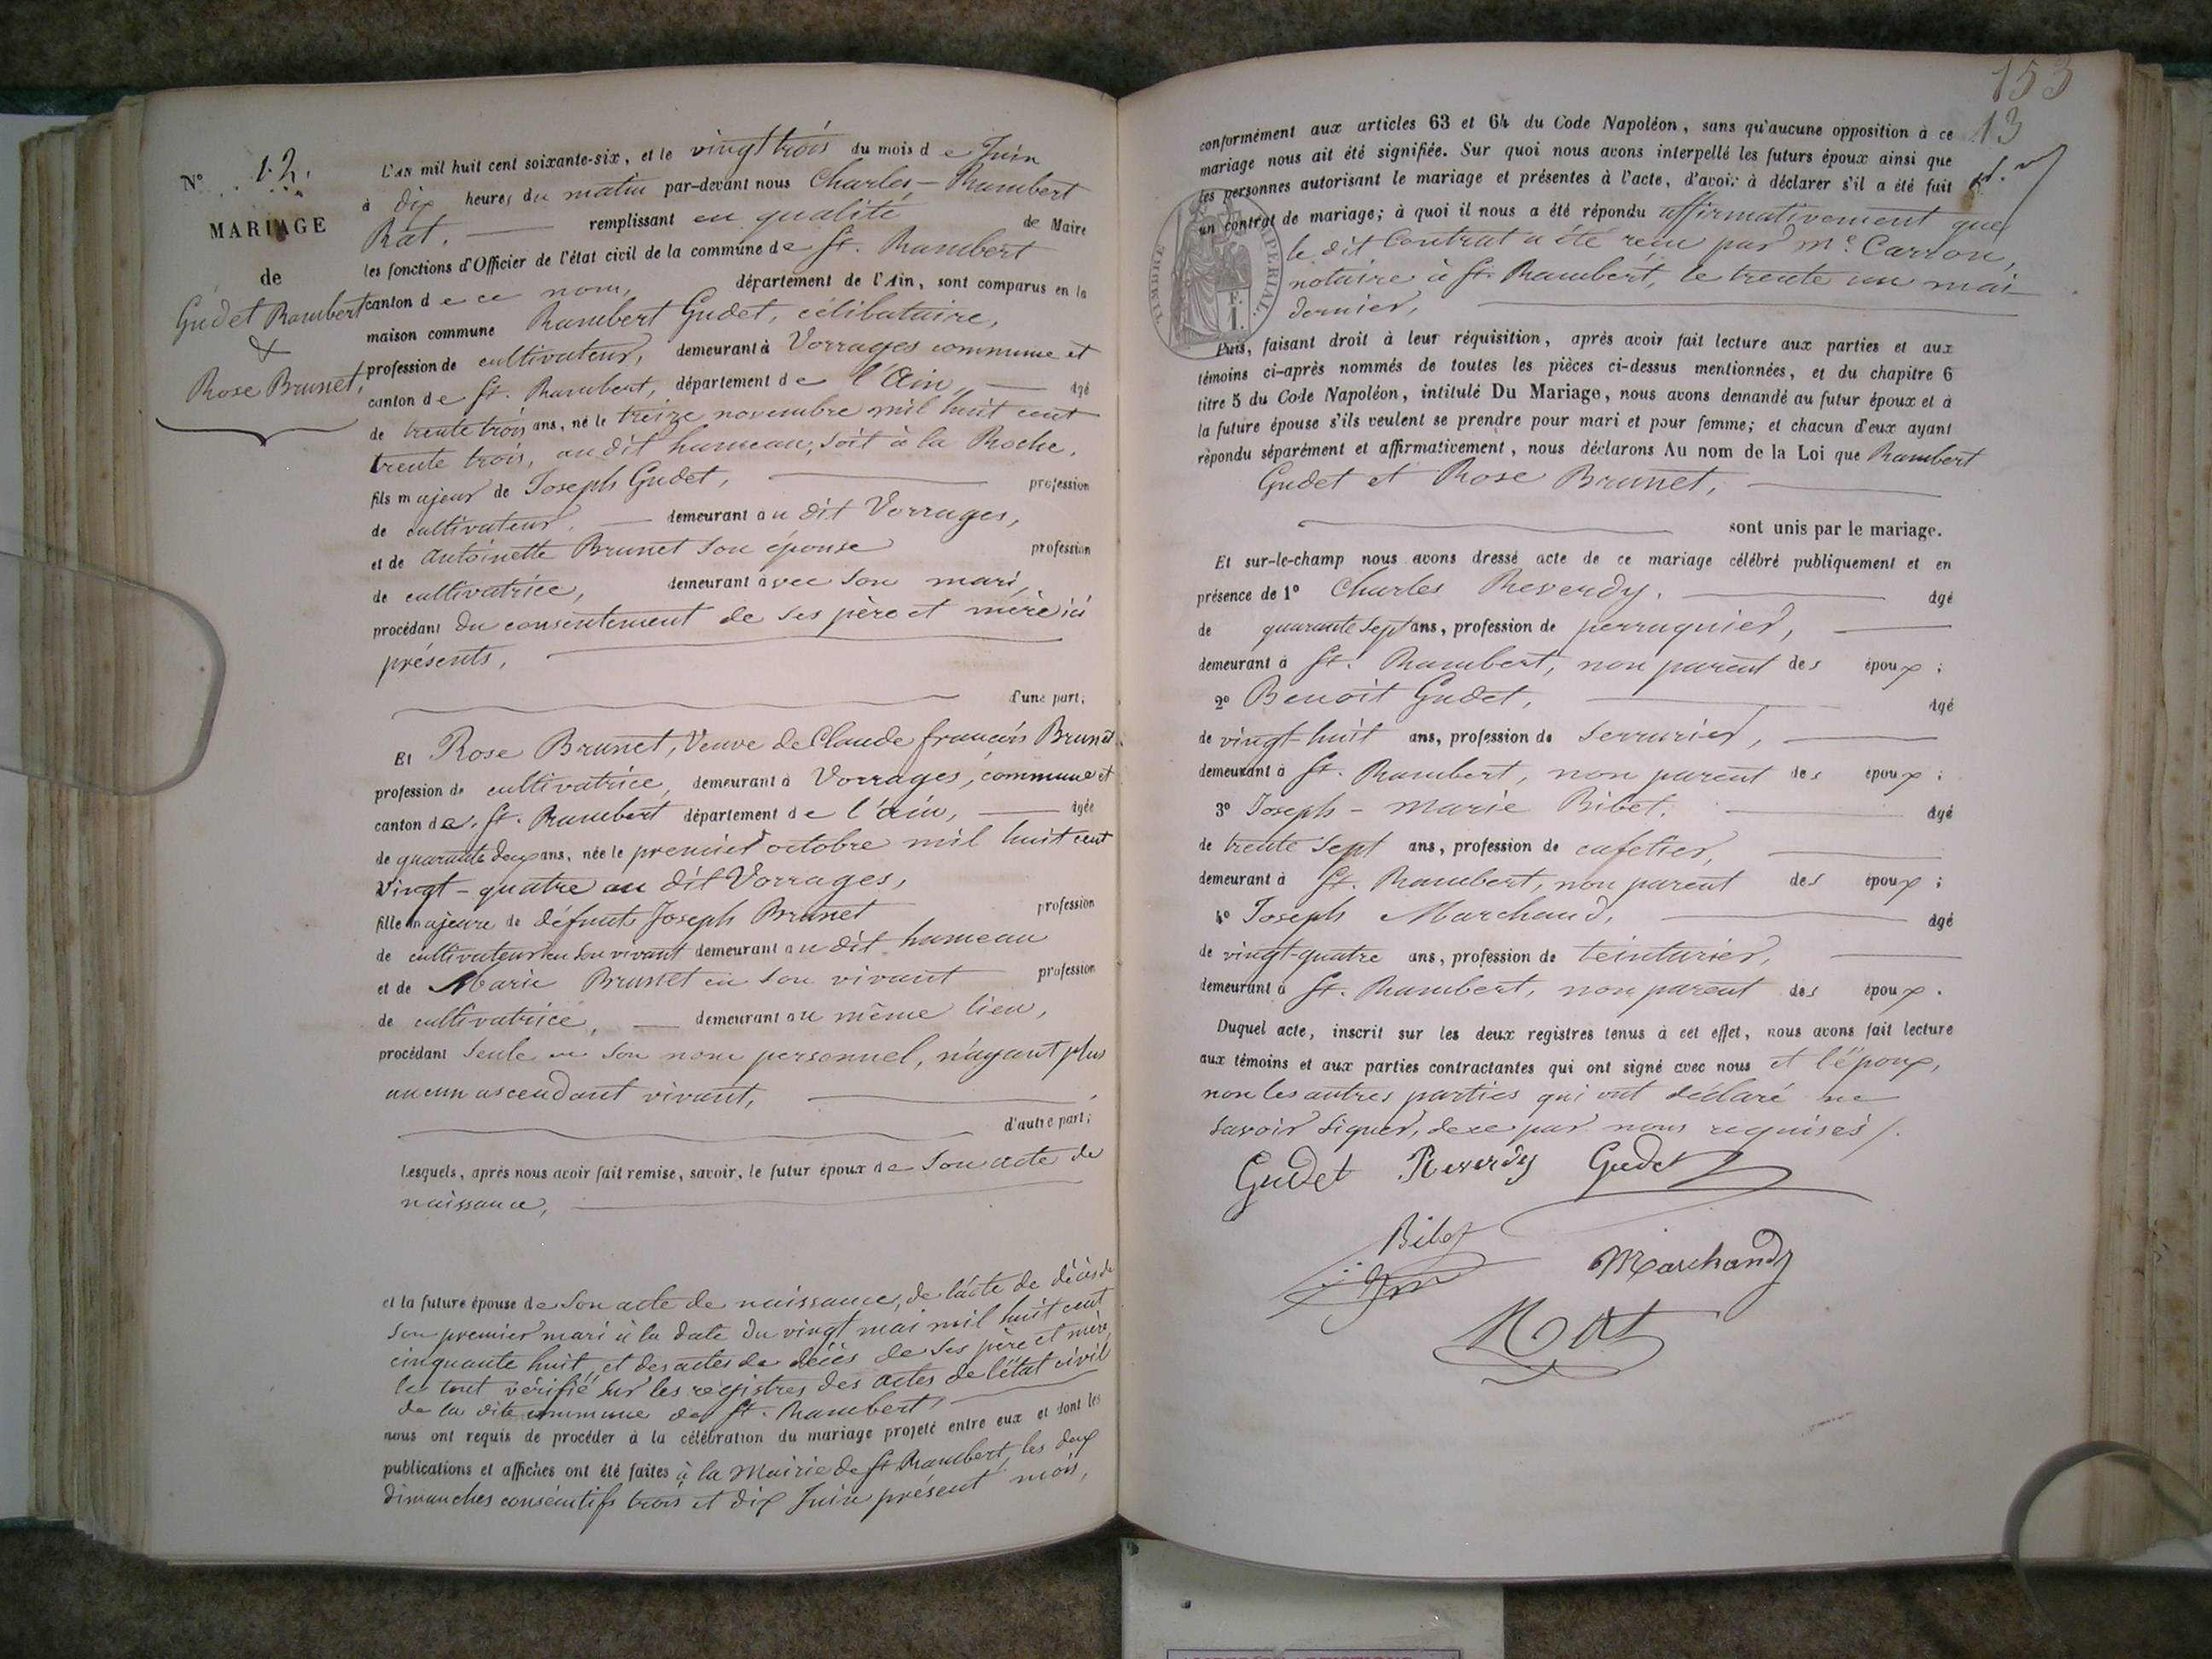 N° 12.
MARIAGE
de
Gudet Rambert
&
Rose Brunet,
L'AN mil huit cent soixante-six, et le vingt trois du mois de Juin
à dix heures du matin par-devant nous Charles-Rambert
Rat. remplissant en qualité de Maire
les fonctions d'Officier de l'état civil de la commune de St. Rambert
canton de ce nom, département de l'Ain, sont comparus en la
maison commune Rambert Gudet, célibataire,
profession de cultivateur, demeurant à Vorrages commune et
canton de St. Rambert, département de l'Ain, âgé
de trente trois ans, né le treize novembre mil huit cent
trente trois, au dit hameau, soit à la Roche,
fils majeur de Joseph Gudet, profession
de cultivateur demeurant au dit Vorrages,
et de Antoinette Brunet son épouse profession
de cultivatrice, demeurant avec son mari,
procédant du consentement de ses père et mère ici
présents,
d'une part;
Et Rose Brunet, Veuve de Claude françois Brunet
profession de cultivatrice, demeurant à Vorrages, commune et
canton de St. Rambert département de l'ain, âgée
de quarante deux ans, née le premier octobre mil huit cent
vingt-quatre au dit Vorrages,
fille majeure de défunts Joseph Brunet profession
de cultivateur en son vivant demeurant au dit hameau
et de Marie Brunet en son vivant profession
de cultivatrice, demeurant au même lieu,
procédant seule en son nom personnel, n'ayant plus
aucun ascendant vivant,
d'autre part;
Lesquels, après nous avoir fait remise, savoir, le futur époux de son acte de
naissance,
et la future épouse de son acte de naissance, de l'acte de décès de
son premier mari à la date du vingt mai mil huit cent
cinquante huit, et des actes de décès de ses père et mère,
le tout vérifié sur les registres des actes de l'état civil
de la dite commune de St. Rambert,
nous ont requis de procéder à la célébration du mariage projeté entre eux et dont les
publications et affiches ont été faites à la Mairie de St Rambert, les deux
dimanches consécutifs trois et dix Juin présent mois,
153
13
conformément aux articles 63 et 64 du Code Napoléon, sans qu'aucune opposition à ce
mariage nous ait été signifiée. Sur quoi nous avons interpellé les futurs époux ainsi que
les personnes autorisant le mariage et présentes à l'acte, d'avoir à déclarer s'il a été fait
un contrat de mariage; à quoi il nous a été répondu affirmativement que
le dit Contrat a été reçu par Me. Carron,
notaire à St. Rambert, le trente un mai
dernier,
TIMBRE IMPERIAL
F.
1.
Puis, faisant droit à leur réquisition, après avoir fait lecture aux parties et aux
témoins ci-après nommés de toutes les pièces ci-dessus mentionnées, et du chapitre 6
titre 5 du Code Napoléon, intitulé Du Mariage, nous avons demandé au futur époux et à
la future épouse s'ils veulent se prendre pour mari et pour femme; et chacun d'eux ayant
répondu séparément et affirmativement, nous déclarons Au nom de la Loi que Rambert
Gudet et Rose Brunet,
sont unis par le mariage.
Et sur-le-champ nous avons dressé acte de ce mariage célébré publiquement et en
présence de 1° Charles Reverdy. âgé
de quarante sept ans, profession de perruquier,
demeurant à St. Rambert, non parent des époux;
2° Benoit Gudet, âgé
de vingt-huit ans, profession de serrurier,
demeurant à St. Rambert, non parent des époux;
3° Joseph-Marie Bibet. âgé
de trente sept ans, profession de cafetier,
demeurant à St. Rambert, non parent des époux;
4° Joseph Marchand, âgé
de vingt-quatre ans, profession de teinturier,
demeurant à St. Rambert, non parent des époux.
Duquel acte, inscrit sur les deux registres tenus à cet effet, nous avons fait lecture
aux témoins et aux parties contractantes qui ont signé avec nous et l'époux,
non les autres parties qui ont déclaré ne
savoir signer, de ce par nous requises/.
Gudet Reverdy Gudet
Bibet
Marchand
Rat